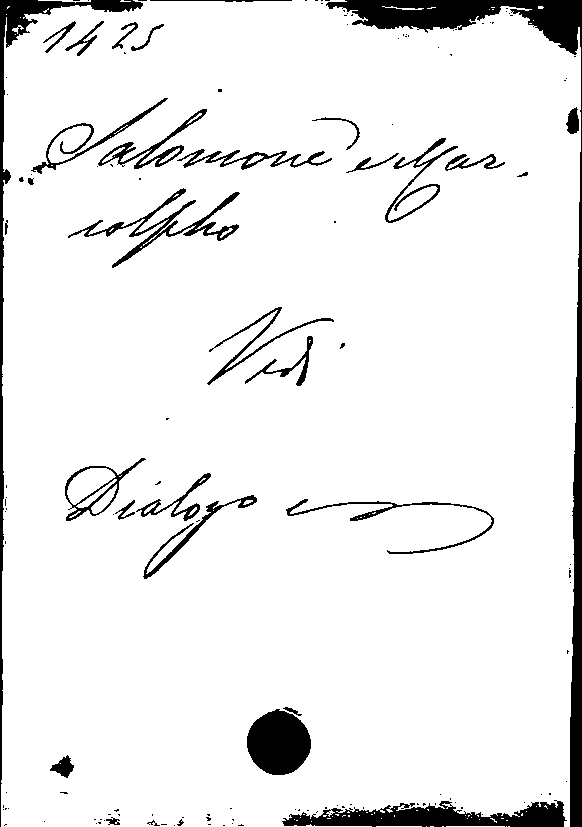 1425
Salomone e Mar.
colpho
Vedi
Dialogo